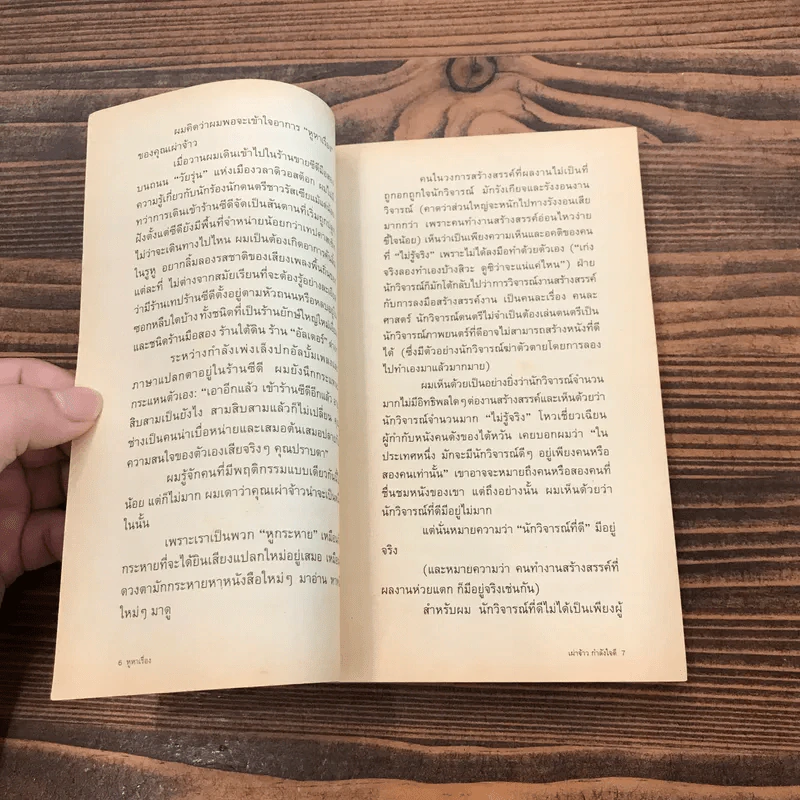 ผมคิดว่าผมพอจะเข้าใจอาการ "หูหาเรื่อง"
ของคุณเผ่าจ้าว
เมื่อวานผมเดินเข้าไปในร้านขายซีดีมือสอง
บนถนน "วัยรุ่น" แห่งเมืองวลาดิวอสต็อก ผมไม่มี
ความรู้เกี่ยวกับนักร้องนักดนตรีชาวรัสเซียแม้แต่น้อย
ทว่าการเดินเข้าร้านซีดีจัดเป็นสันดานที่เริ่มถูกปลูก
ฝังตั้งแต่ซีดียังมีพื้นที่จำหน่ายน้อยกว่าเทปคาสเส็ต
ไม่ว่าจะเดินทางไปไหน ผมเป็นต้องเกิดอาการคัน
ในรูหู อยากลิ้มลองรสชาติของเสียงเพลงพื้นถิ่น
แต่ละที่ ไม่ต่างจากสมัยเรียนที่จะต้องรู้อย่างละเอียด
ว่ามีร้านเทปร้านซีดีตั้งอยู่ตามหัวถนนหรือหลบอยู่ใน
ซอกหลืบใดบ้าง ทั้งชนิดที่เป็นร้านยักษ์ใหญ่ใหม่เอี่ยม
และชนิดร้านมือสอง ร้านใต้ดิน ร้าน "อัลเตอร์"
ระหว่างกำลังเพ่งเล็งปกอัลบั้มเพลง
ภาษาแปลกตาอยู่ในร้านซีดี ผมยังนึกกระแนะ
กระแหนตัวเอง: "เอาอีกแล้ว เข้าร้านซีดีอีกแล้ว
สิบสามเป็นยังไง สามสิบสามแล้วก็ไม่เปลี่ยน
ช่างเป็นคนน่าเบื่อหน่ายและเสมอต้นเสมอปลาย
ความสนใจของตัวเองเสียจริงๆ คุณปราบดา"
ผมรู้จักคนที่มีพฤติกรรมแบบเดียวกันนี้
น้อย แต่ก็ไม่มาก ผมเดาว่าคุณเผ่าจ้าวน่าจะเป็นหนึ่ง
ในนั้น
เพราะเราเป็นพวก "หูกระหาย" เหมือน
กระหายที่จะได้ยินเสียงแปลกใหม่อยู่เสมอ เหมือน
ดวงตามักกระหายหาหนังสือใหม่ๆ มาอ่าน หา
ใหม่ๆ มาดู
6 หูหาเรื่อง
คนในวงการสร้างสรรค์ที่ผลงานไม่เป็นที่
ถูกอกถูกใจนักวิจารณ์ มักรังเกียจและรังงอนงาน
วิจารณ์ (คาดว่าส่วนใหญ่จะหนักไปทางรังงอนเสีย
มากกว่า เพราะคนทำงานสร้างสรรค์อ่อนไหวง่าย
ขี้ใจน้อย) เห็นว่าเป็นเพียงความเห็นและอคติของคน
ที่ "ไม่รู้จริง" เพราะไม่ได้ลงมือทำด้วยตัวเอง ("เก่ง
จริงลองทำเองบ้างสิวะ ดูซิจะแน่แค่ไหน") ฝ่าย
นักวิจารณ์ก็มักโต้กลับไปว่าการวิจารณ์งานสร้างสรรค์
กับการลงมือสร้างสรรค์งาน เป็นคนละเรื่อง คนละ
ศาสตร์ นักวิจารณ์ดนตรีไม่จำเป็นต้องเล่นดนตรีเป็น
นักวิจารณ์ภาพยนตร์ที่ดีอาจไม่สามารถสร้างหนังที่ดี
ได้ (ซึ่งมีตัวอย่างนักวิจารณ์ฆ่าตัวตายโดยการลอง
ไปทำเองมาแล้วมากมาย)
ผมเห็นด้วยเป็นอย่างยิ่งว่านักวิจารณ์จำนวน
มากไม่มีอิทธิพลใดๆ ต่องานสร้างสรรค์และเห็นด้วยว่า
นักวิจารณ์จำนวนมาก "ไม่รู้จริง" โหวเชี่ยวเฉียน
ผู้กำกับหนังคนดังของไต้หวัน เคยบอกผมว่า "ใน
ประเทศหนึ่ง มักจะมีนักวิจารณ์ดีๆ อยู่เพียงคนหรือ
สองคนเท่านั้น" เขาอาจจะหมายถึงคนหรือสองคนที่
ชื่นชมหนังของเขา แต่ถึงอย่างนั้น ผมเห็นด้วยว่า
นักวิจารณ์ที่ดีมีอยู่ไม่มาก
แต่นั่นหมายความว่า "นักวิจารณ์ที่ดี" มีอยู่
จริง
(และหมายความว่า คนทำงานสร้างสรรค์ที่
ผลงานห่วยแตก ก็มีอยู่จริงเช่นกัน)
สำหรับผม นักวิจารณ์ที่ดีไม่ได้เป็นเพียงผู้
เผ่าจ้าว กำลังใจดี 7